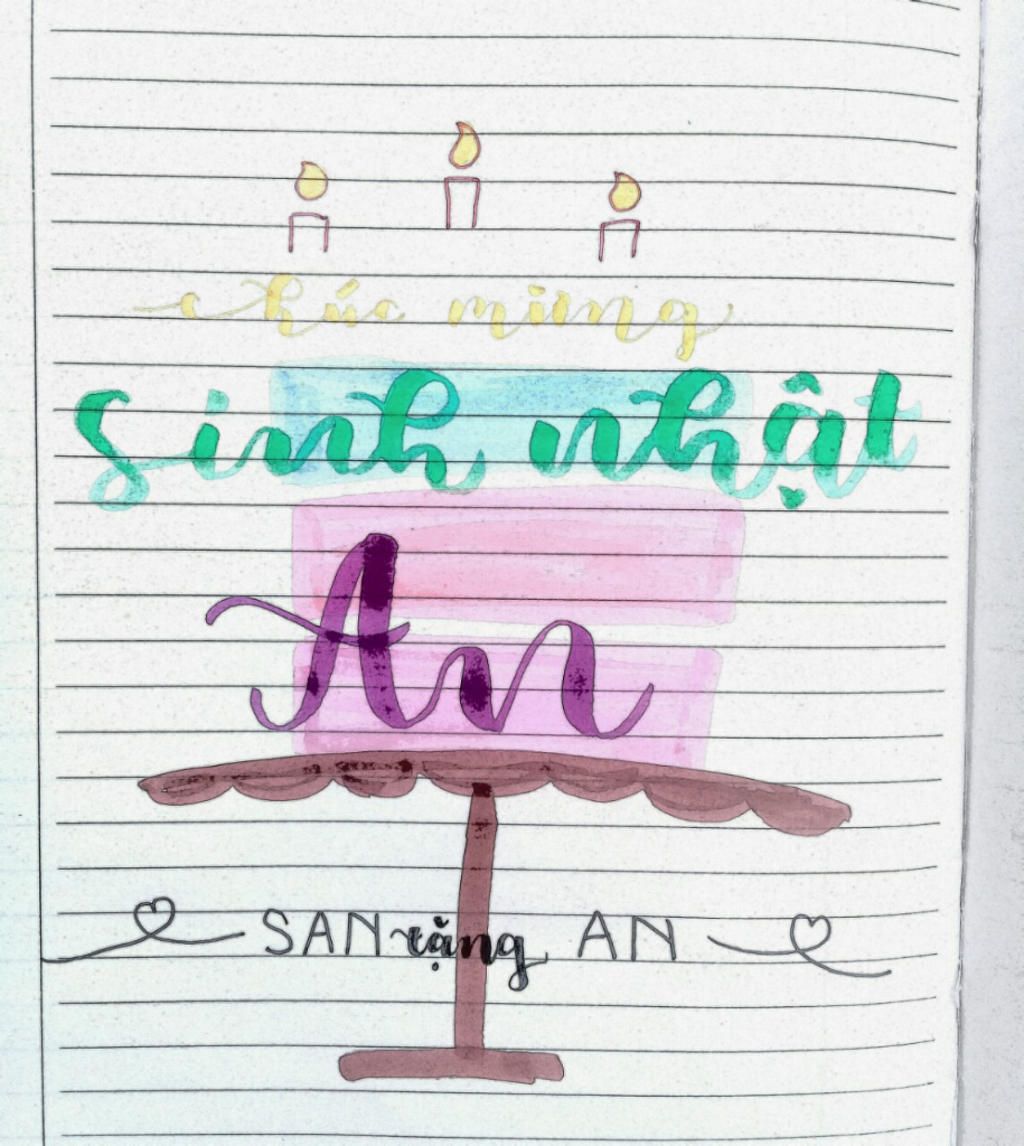 chúc mừng
Sinh nhật
An
SAN tặng AN